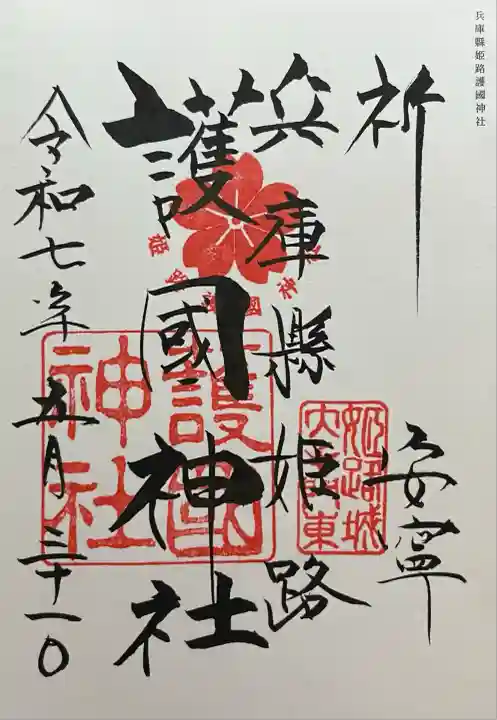 兵庫縣姫路護國神社
祈 安寧
兵庫縣姫路
護國神社
令和七年五月三十一日
姫路城
大手門東
護國
神社